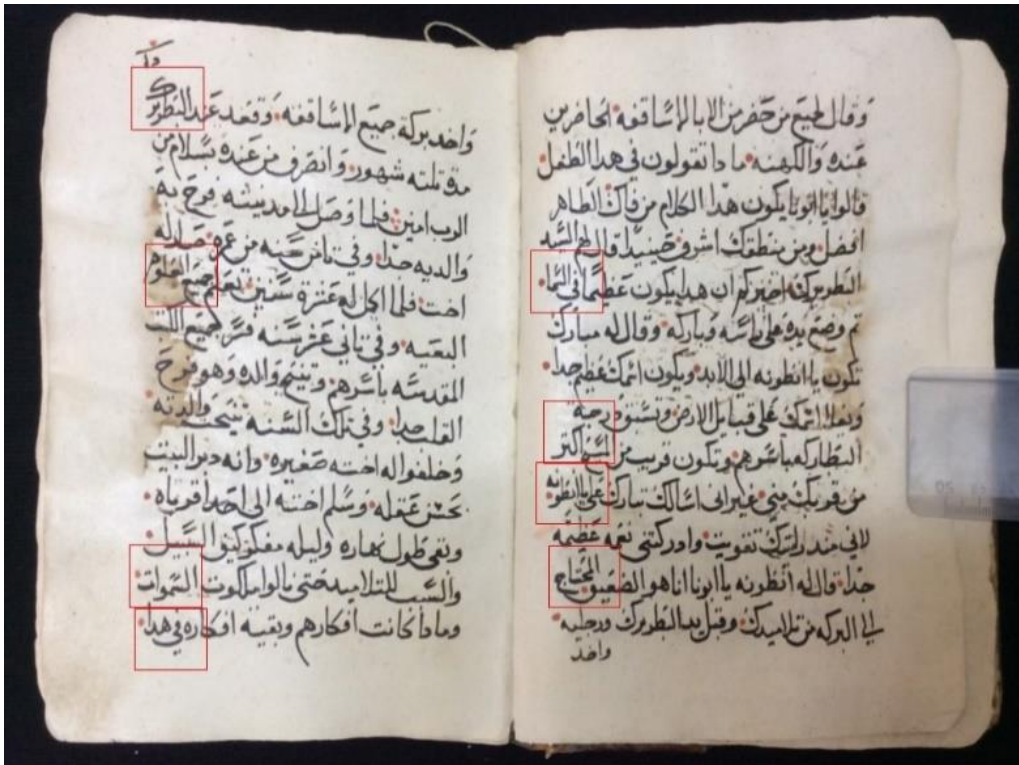 وقال لجميع من حضر من الابا الاساقفه الحاضرين
عنده والكهنه ما دا تقولون في هدا الطفل
قالوا يا ابونا يكون هدا الكلام من فاك الطاهر
افضل ومن منطقك اشرف حينيدا قال لهم السيد
البطريرك اخبركم ان هدا يكون عظيما في السما
تم وضع يده على راسه وباركه وقال له مبارك
تكون يا انطونه الي الابد ويكون اسمك عظيم جدا
ويعلا اسمك على قبايل الارض وتسبق درجة
البطاركه باسرهم وتكون قريب من المسيح اكتر
من قربك مني غير اني اسالك تبارك علي يا انطونه
لاني مند رايتك تقويت وادركتني نعمه عظيمه
جدا قال له انطونه يا ابونا انا هو الضعيف المحتاج
الي البركه من تلاميدك وقبل يدا البطريرك ورجليه
واخد
واخد بركة جميع الاساقفه وقعد عند البطريرك
مدة تلته شهور وانصرف من عنده بسلام من
الرب امين فلما وصل الي مدينته فرح به
والديه جدا وفي تامن سنه من عمره صار له
اخت فلما اكمل له عشرة سنين تعلم جميع العلوم
البيعيه وفي تاني عشر سنه قرا لجميع الكتب
المقدسه باسرهم وتنيح والده وهو فرح
القلب جدا وفي تلك السنه تنيحت والدته
وخلفوا له اخته صغيره وانه دبر البيت
بحسن عقله وسلم اخته الي احد اقرباه
وبقي طول نهاره وليله مفكر كيف السبيل
والسبب للتلاميد حتى نالوا ملكوت السموات
وما دا كانت افكارهم وبقيه افكاره في هدا